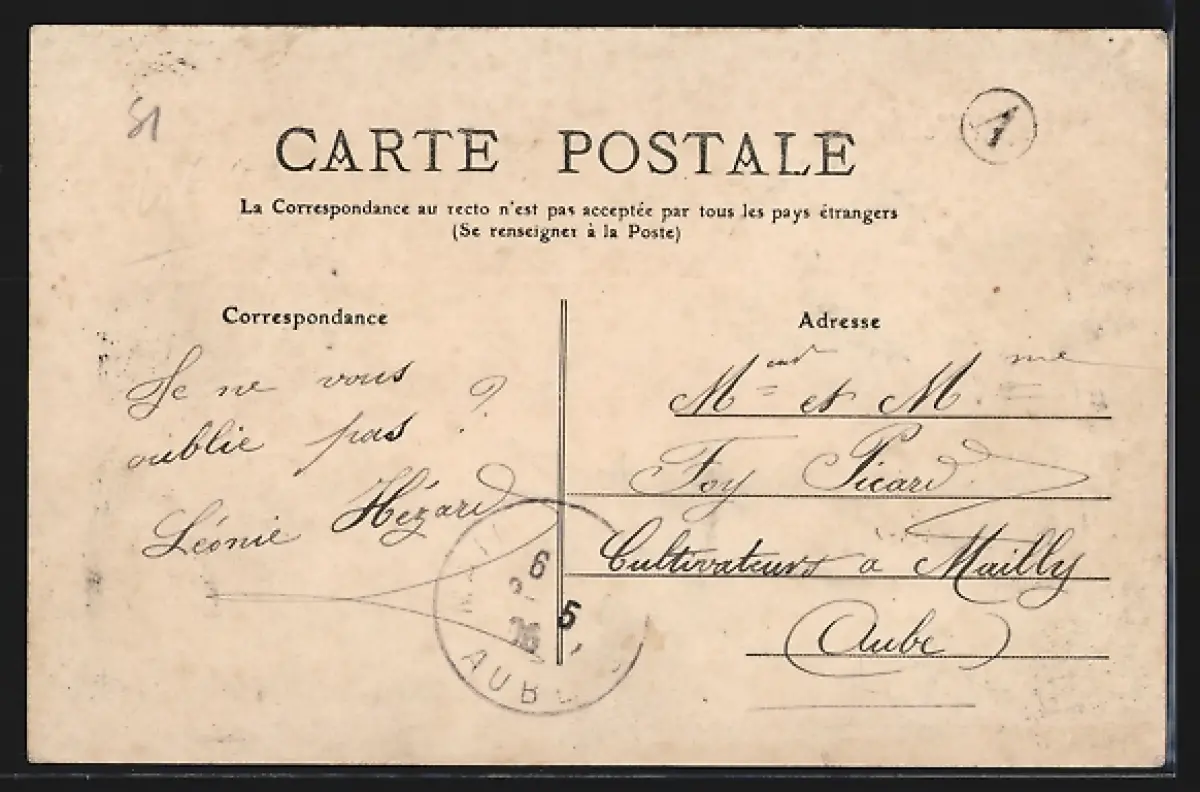 51
1
CARTE POSTALE
La Correspondance au recto n'est pas acceptée par tous les pays étrangers
(Se renseigner à la Poste)
Correspondance
Je ne vous
oublie pas ?
Léonie Hézard
Adresse
M et M me
Foy Picard
Cultivateurs à Mailly
(Aube)
6
5
AUBE